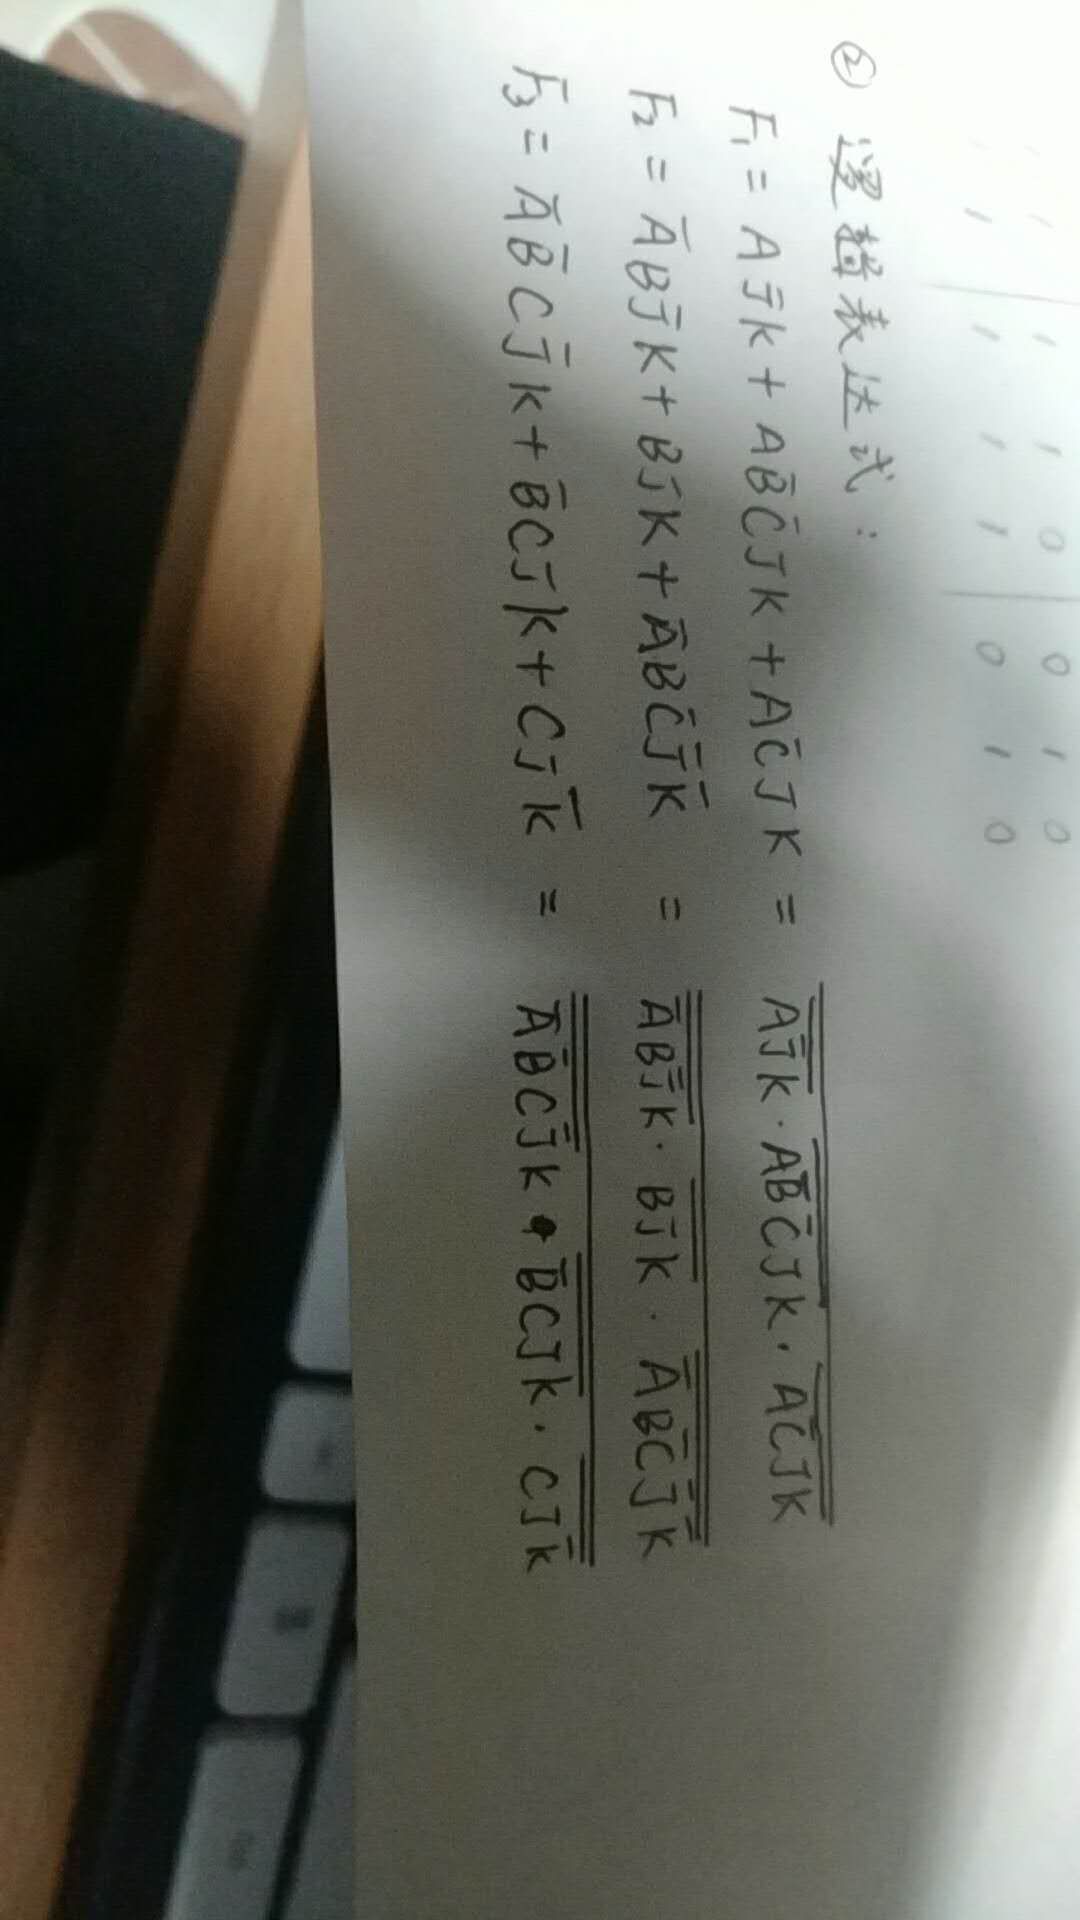 1 1 1 1 0 0 1 0
1 1 1 1 1 0 1 0
② 逻辑表达式:
F₁ = AJ̄K + AB̄C̄JK + AC̄JK = \overline{\overline{AJ̄K}·\overline{AB̄C̄JK}·\overline{AC̄JK}}
F₂ = ĀBJ̄K + BJK + ĀBC̄J̄K̄ = \overline{\overline{ĀBJ̄K}·\overline{BJK}·\overline{ĀBC̄J̄K̄}}
F₃ = ĀB̄CJ̄K + B̄CJK + CJK̄ = \overline{\overline{ĀB̄CJ̄K}·\overline{B̄CJK}·\overline{CJK̄}}